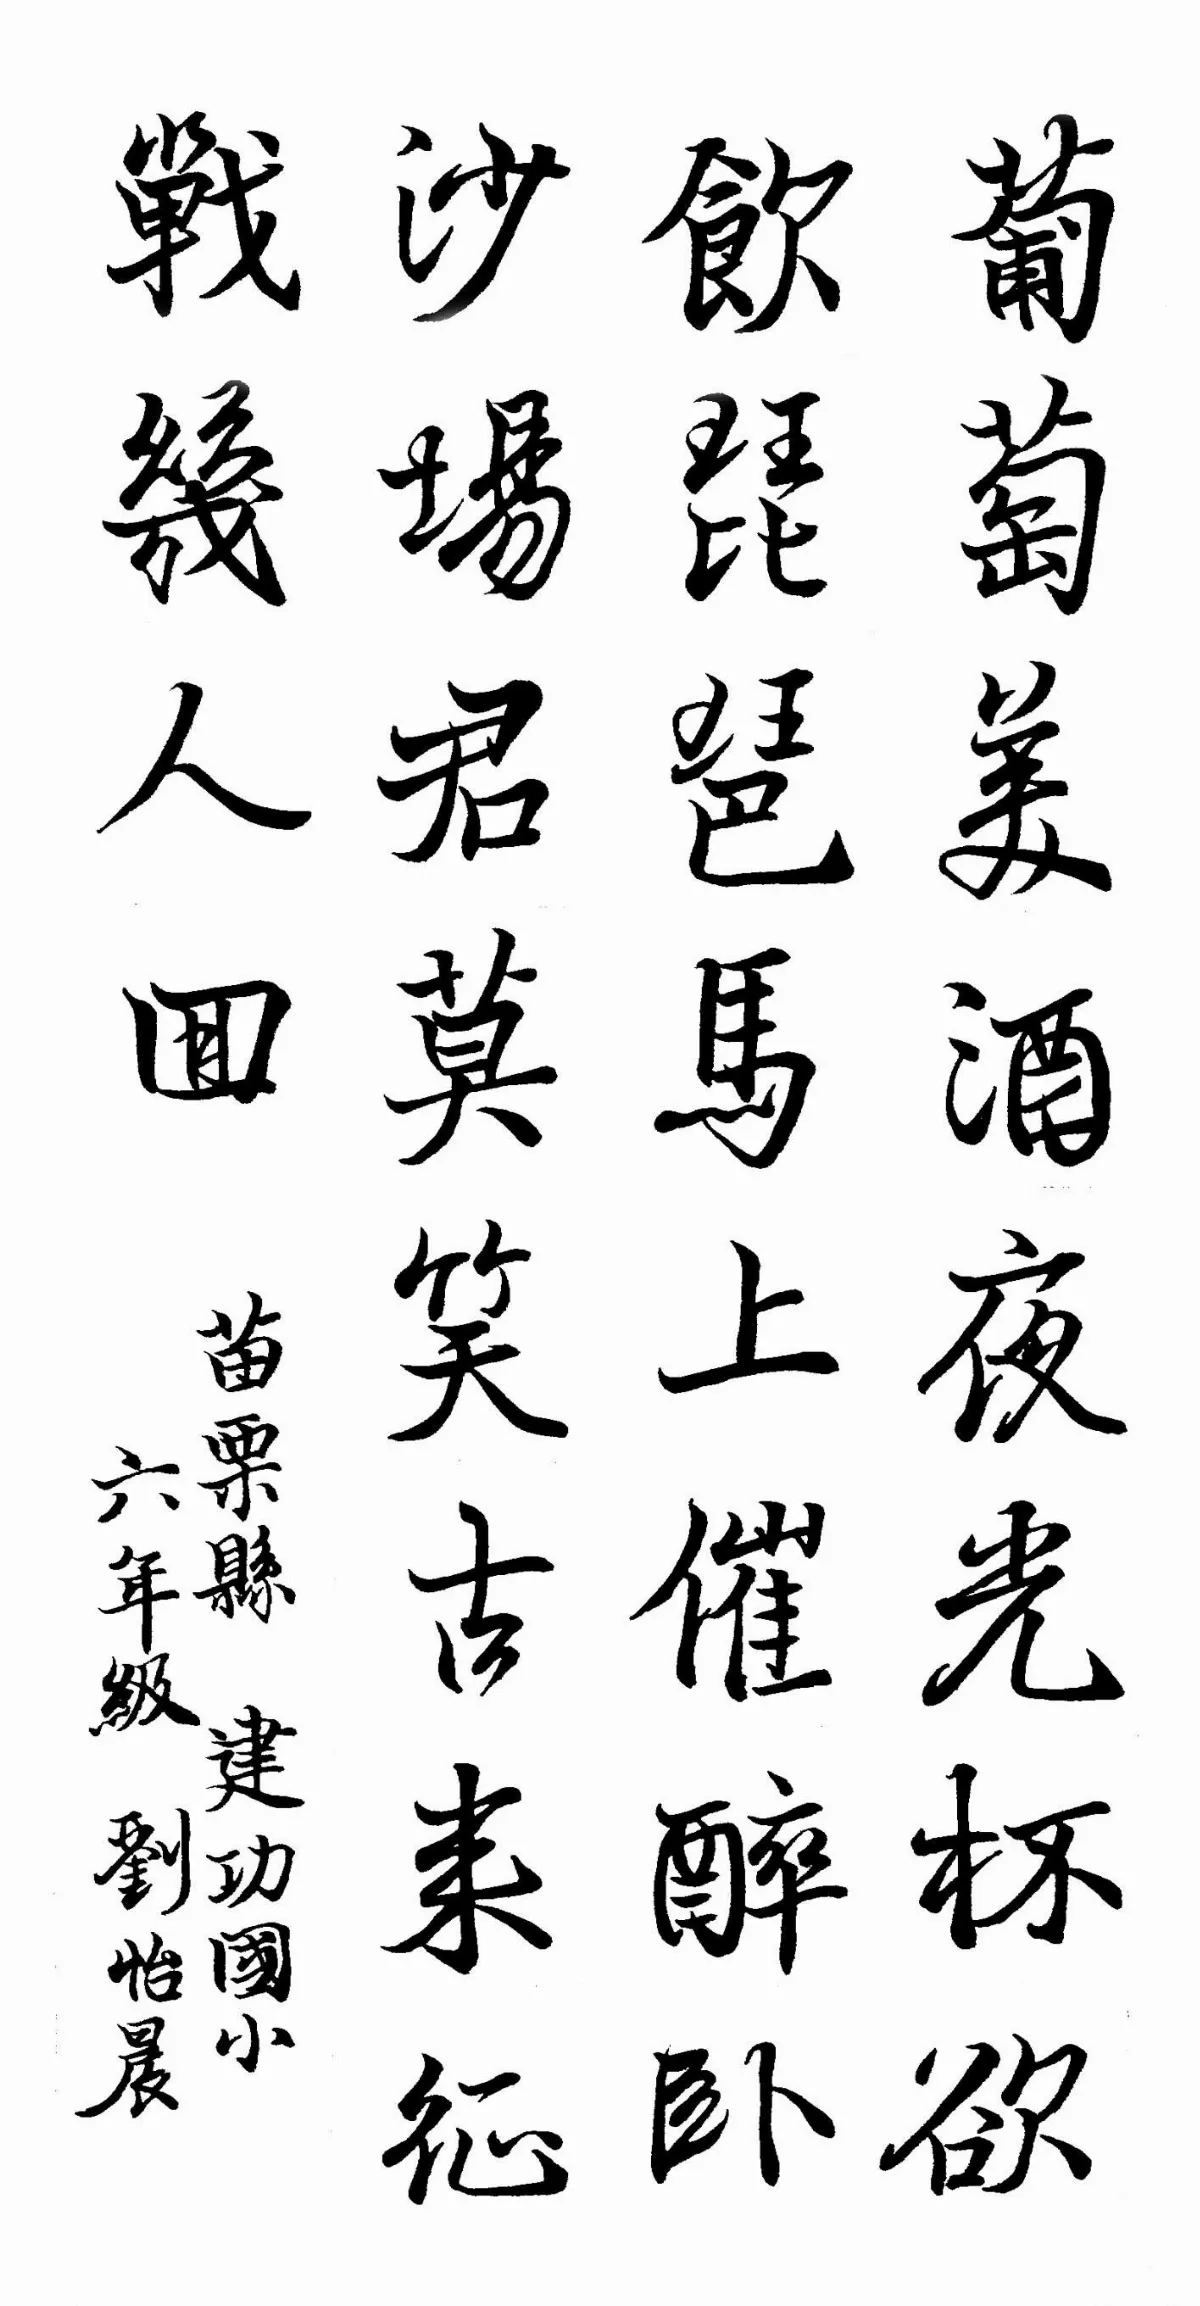 葡萄美酒夜光杯欲
飲琵琶馬上催醉臥
沙場君莫笑古来征
戰幾人回
苗栗縣 建功國小
六年級 劉怡晨